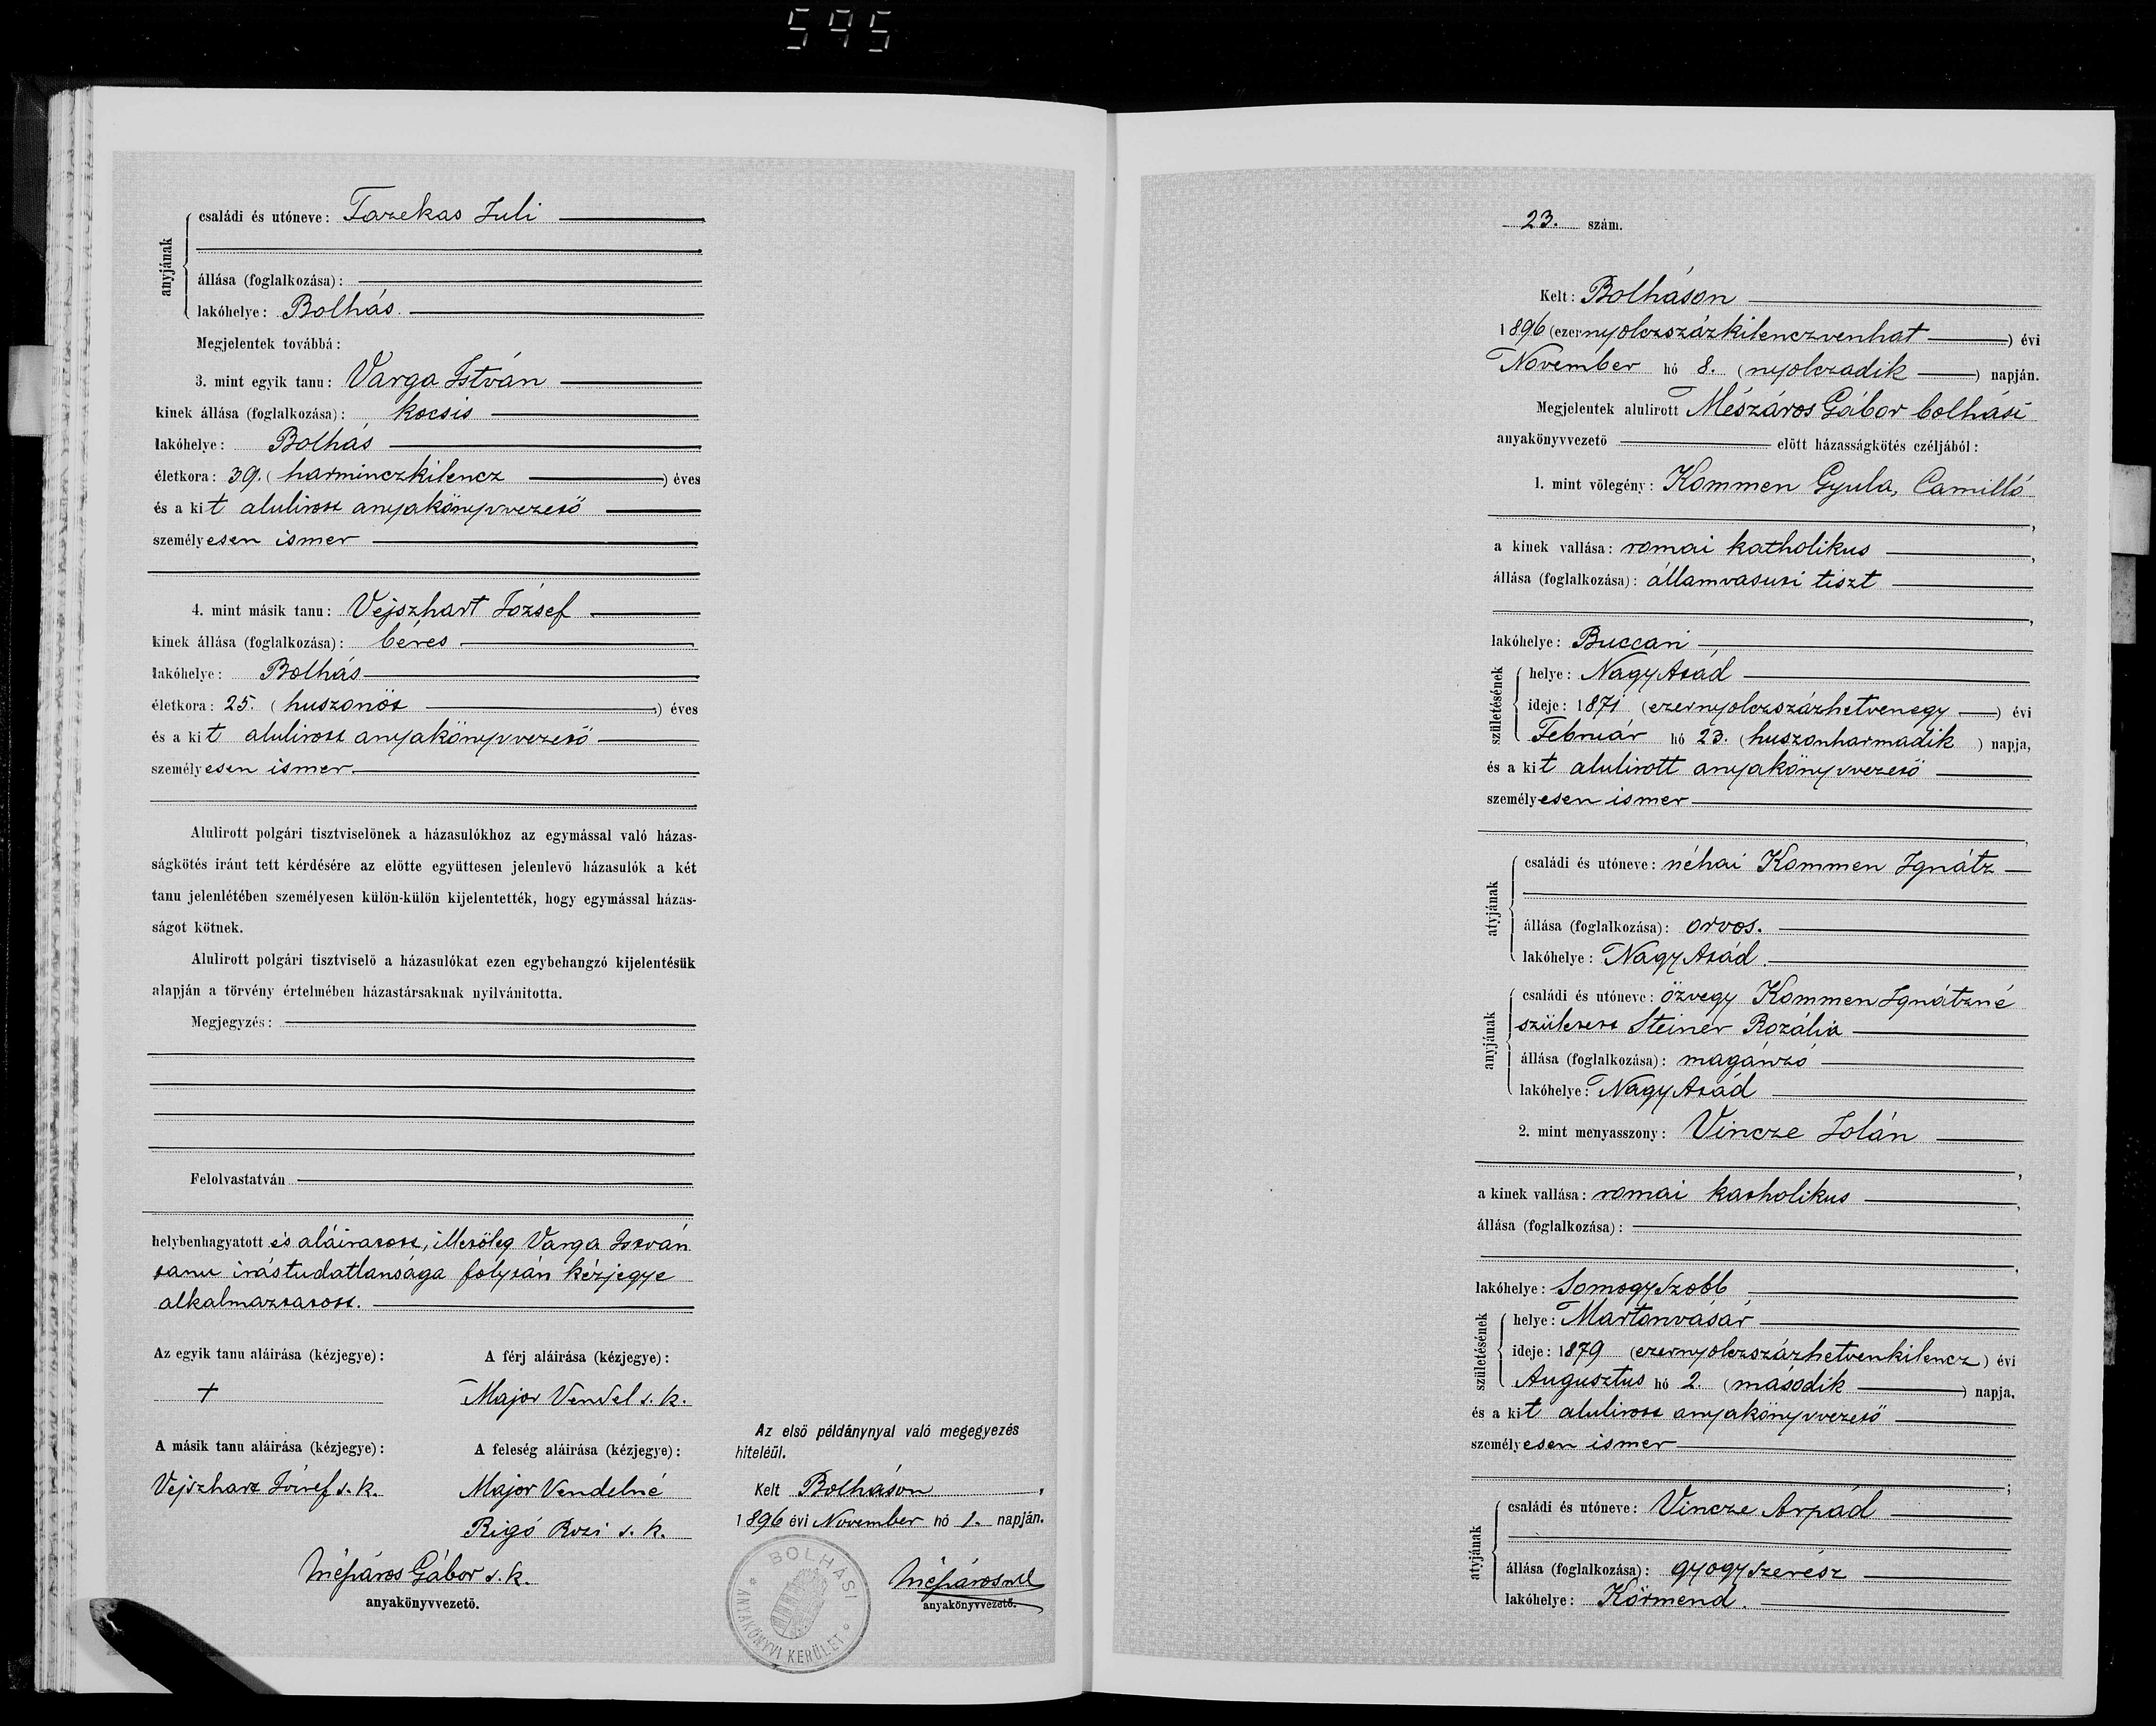 595
anyjának
családi és utóneve: Fazekas Juli
állása (foglalkozása):
lakóhelye: Bolhás.
Megjelentek továbbá:
3. mint egyik tanu: Varga István
kinek állása (foglalkozása): kocsis
lakóhelye: Bolhás
életkora: 39. (harminczkilencz) éves
és a kit alulirott anyakönyvvezető
személyesen ismer
4. mint másik tanu: Vejszhart József
kinek állása (foglalkozása): béres
lakóhelye: Bolhás
életkora: 25. (huszonöt) éves
és a kit alulirott anyakönyvvezető
személyesen ismer.
Alulirott polgári tisztviselönek a házasulókhoz az egymással való házas-
ságkötés iránt tett kérdésére az elötte együttesen jelenlevö házasulók a két
tanu jelenlétében személyesen külön-külön kijelentették, hogy egymással házas-
ságot kötnek.
Alulirott polgári tisztviselö a házasulókat ezen egybehangzó kijelentésük
alapján a törvény értelmében házastársaknak nyilvánitotta.
Megjegyzés:
Felolvastatván
helybenhagyatott és aláiratott, illetőleg Varga István
tanu irástudatlansága folytán kézjegye
alkalmaztatott.
Az egyik tanu aláirása (kézjegye): A férj aláirása (kézjegye):
+ Major Vendel s. k.
A másik tanu aláirása (kézjegye): A feleség aláirása (kézjegye):
Vejszhart József s. k. Major Vendelné
Rigó Rozi s. k.
Mészáros Gábor s. k.
anyakönyvvezetö.
Az elsö példánynyal való megegyezés
hiteléül.
Kelt Bolháson,
1896 évi November hó 1. napján.
BOLHÁSI
ANYAKÖNYVI KERÜLET
anyakönyvvezetö.
23. szám.
Kelt: Bolháson
1896 (ezernyolczszázkilenczvenhat) évi
November hó 8. (nyolczadik) napján.
Megjelentek alulirott Mészáros Gábor bolhási
anyakönyvvezetö elött házasságkötés czéljából:
1. mint völegény: Kommen Gyula, Camilló
,
a kinek vallása: romai katholikus,
állása (foglalkozása): államvasuti tiszt
,
lakóhelye: Buccari,
születésének
helye: NagyAtád
ideje: 1871 (ezernyolczszázhetvenegy) évi
Február hó 23. (huszonharmadik) napja,
és a kit alulirott anyakönyvvezető
személyesen ismer
,
atyjának
családi és utóneve: néhai Kommen Ignátz
állása (foglalkozása): orvos.
lakóhelye: NagyAtád.
anyjának
családi és utóneve: özvegy Kommen Ignátzné
született Steiner Rozália
állása (foglalkozása): magánzó
lakóhelye: NagyAtád
2. mint menyasszony: Vincze Jolán
,
a kinek vallása: romai katholikus,
állása (foglalkozása):
,
lakóhelye: SomogySzobb
születésének
helye: Martonvásár
ideje: 1879 (ezernyolczszázhetvenkilencz) évi
Augusztus hó 2. (második) napja,
és a kit alulirott anyakönyvvezető
személyesen ismer
;
atyjának
családi és utóneve: Vincze Árpád
állása (foglalkozása): gyogyszerész
lakóhelye: Körmend.